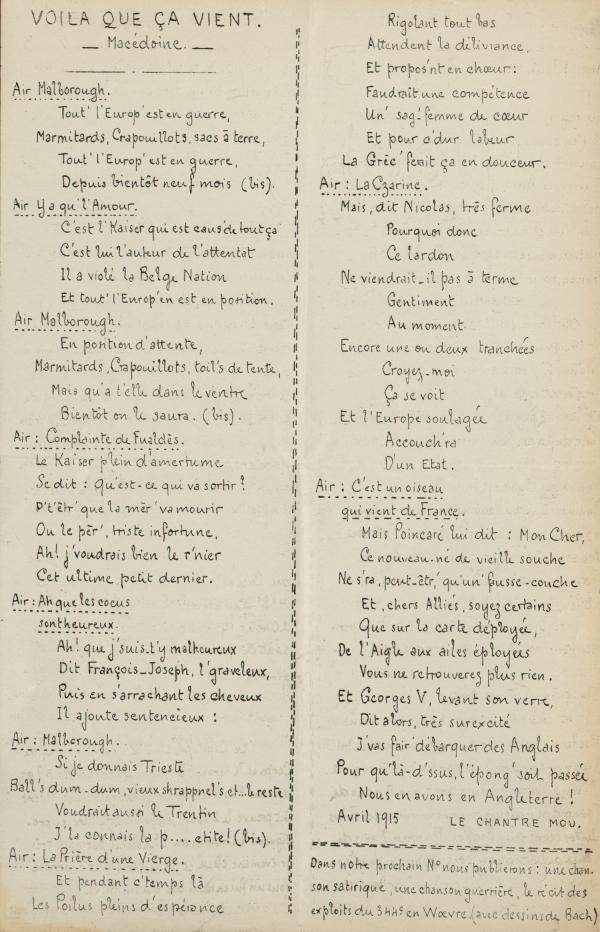 VOILA QUE ÇA VIENT.
— Macédoine. —
Air Malborough.
Tout' l'Europ' est en guerre,
Marmitards, Crapouillots, sacs à terre,
Tout' l'Europ' est en guerre,
Depuis bientôt neuf mois (bis).
Air Y a qu'l'Amour.
C'est l'Kaiser qui est caus' de tout ça
C'est lui l'auteur de l'attentat
Il a violé la Belge Nation
Et tout' l'Europ' en est en position.
Air Malborough.
En position d'attente,
Marmitards, Crapouillots, toil's de tente,
Mais qu'a t'elle dans le ventre
Bientôt on le saura. (bis).
Air : Complainte de Fualdès.
Le Kaiser plein d'amertume
Se dit : qu'est-ce qui va sortir ?
P't'êtr' que la mèr' va mourir
Ou le pèr', triste infortune,
Ah! j'voudrais bien le r'nier
Cet ultime petit dernier.
Air : Ah que les cocus
sont heureux.
Ah! que j'suis-t'y malheureux
Dit François-Joseph, l'graveleux,
Puis en s'arrachant les cheveux
Il ajoute sentencieux :
Air : Malborough.
Si je donnais Trieste
Ball's dum-dum, vieux shrappnel's et...le reste
Voudrait aussi le Trentin
J'la connais la p.....etite! (bis).
Air : La Prière d'une Vierge.
Et pendant c'temps là
Les Poilus pleins d'espérance
Rigolant tout bas
Attendent la délivrance,
Et propos'nt en chœur :
Faudrait une compétence
Un' sag'-femme de cœur
Et pour c'dur labeur
La Grèc' ferait ça en douceur.
Air : La Czarine.
Mais, dit Nicolas, très ferme
Pourquoi donc
Ce lardon
Ne viendrait-il pas à terme
Gentiment
Au moment.
Encore une ou deux tranchées
Croyez-moi
Ça se voit
Et l'Europe soulagée
Accouch'ra
D'un Etat.
Air : C'est un oiseau
qui vient de France.
Mais Poincaré lui dit : Mon Cher,
Ce nouveau-né de vieille souche
Ne s'ra, peut-êtr,' qu'un' fausse-couche
Et, chers Alliés, soyez certains
Que sur la carte déployée,
De l'Aigle aux ailes éployées
Vous ne retrouverez plus rien.
Et Georges V, levant son verre,
Dit alors, très surexcité
J'vas fair' débarquer des Anglais
Pour qu'là-d'ssus, l'épong' soit passée
Nous en avons en Angleterre !
Avril 1915 LE CHANTRE MOU.
Dans notre prochain N° nous publierons : une chan-
son satirique, une chanson guerrière, le récit des
exploits du 344e en Wœvre. (avec dessins de Bach)